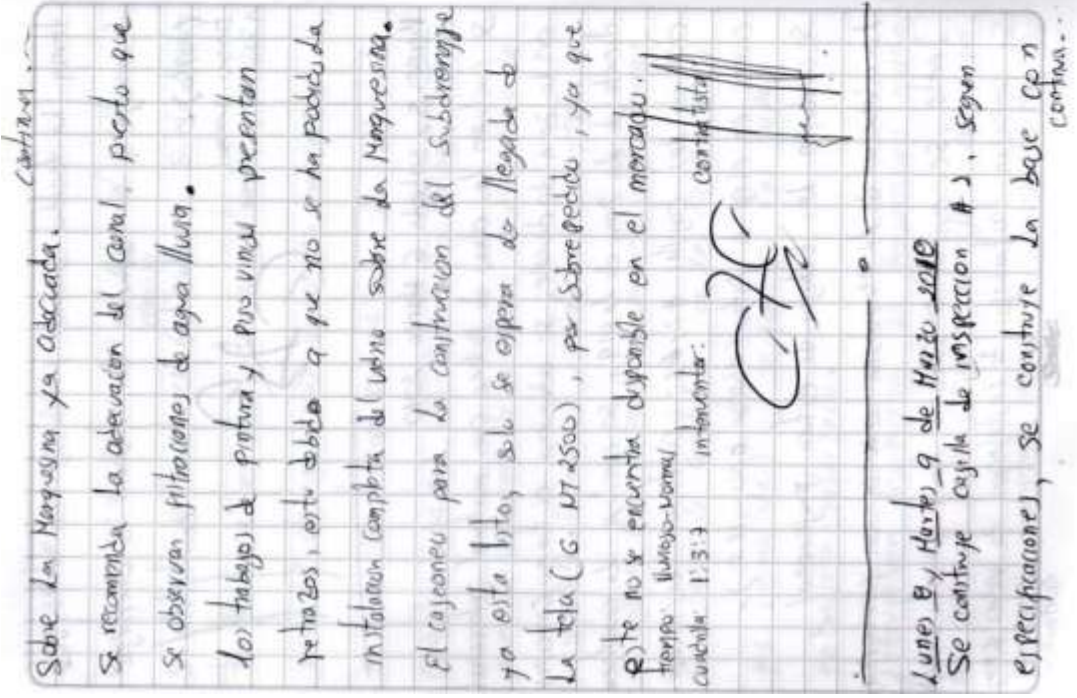 continua...
Sobre La Marquesina ya adecuada.
Se recomienda La adecuacion del canal, puesto que
se observan filtraciones de agua lluvia.
Los trabajos de pintura y piso vinilo presentan
retrazos, esto debido a que no se ha podido da
instalacion completa del vidrio sobre La Marquesina.
El cajeoneo para La construccion del subdrenaje
ya esta listo, solo se espera la llegada de
La tela (G NT 2500), por sobrepedido, ya que
este no se encuentra disponible en el mercado.
tiempo: lluvioso-Normal
cuadrilla 1:3:7 interventor: contratista
Lunes 8 y Martes 9 de Marzo 2010
Se construye cajilla de inspeccion #2, segun
especificaciones, se construye La base con
continua...